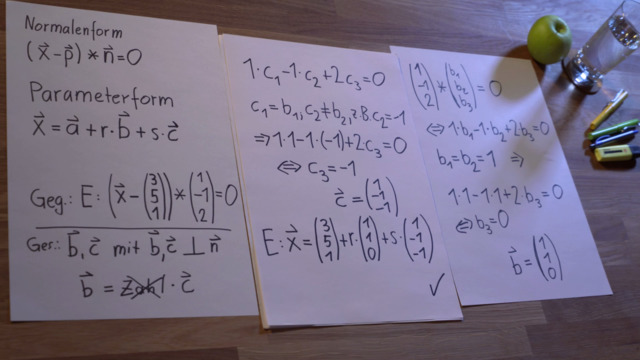 Normalenform
(x⃗ - p⃗) * n⃗ = 0
Parameterform
x⃗ = a⃗ + r·b⃗ + s·c⃗
Geg.: E: (x⃗ - (3 5 1)) * (1 -1 2) = 0
Ges.: b⃗, c⃗ mit b⃗, c⃗ ⊥ n⃗
b⃗ = Zahl · c⃗
1·c₁ - 1·c₂ + 2c₃ = 0
c₁ = b₁, c₂ ≠ b₂, z.B. c₂ = -1
⇒ 1·1 - 1·(-1) + 2·c₃ = 0
⇔ c₃ = -1
c⃗ = (1 -1 -1)
E: x⃗ = (3 5 1) + r·(1 1 0) + s·(1 -1 -1)
✓
(1 -1 2) * (b₁ b₂ b₃) = 0
⇔ 1·b₁ - 1·b₂ + 2·b₃ = 0
b₁ = b₂ = 1 ⇒
1·1 - 1·1 + 2·b₃ = 0
⇔ b₃ = 0
b⃗ = (1 1 0)